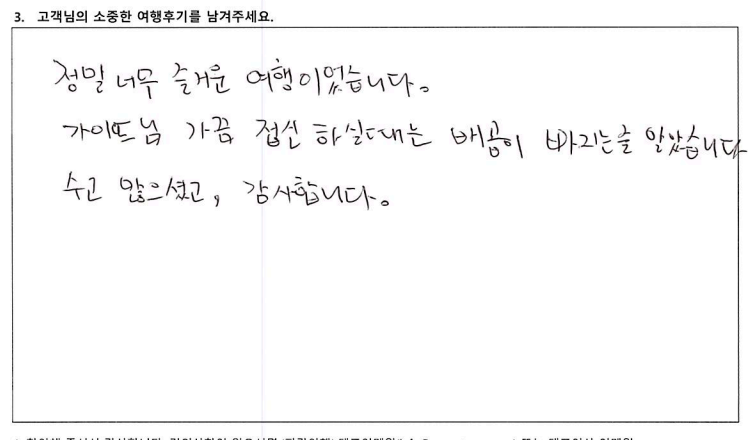 3. 고객님의 소중한 여행후기를 남겨주세요.
정말 너무 즐거운 여행이었습니다.
가이드님 가끔 접신 하실때는 배꼽이 빠지는줄 알았습니다
수고 많으셨고, 감사합니다.